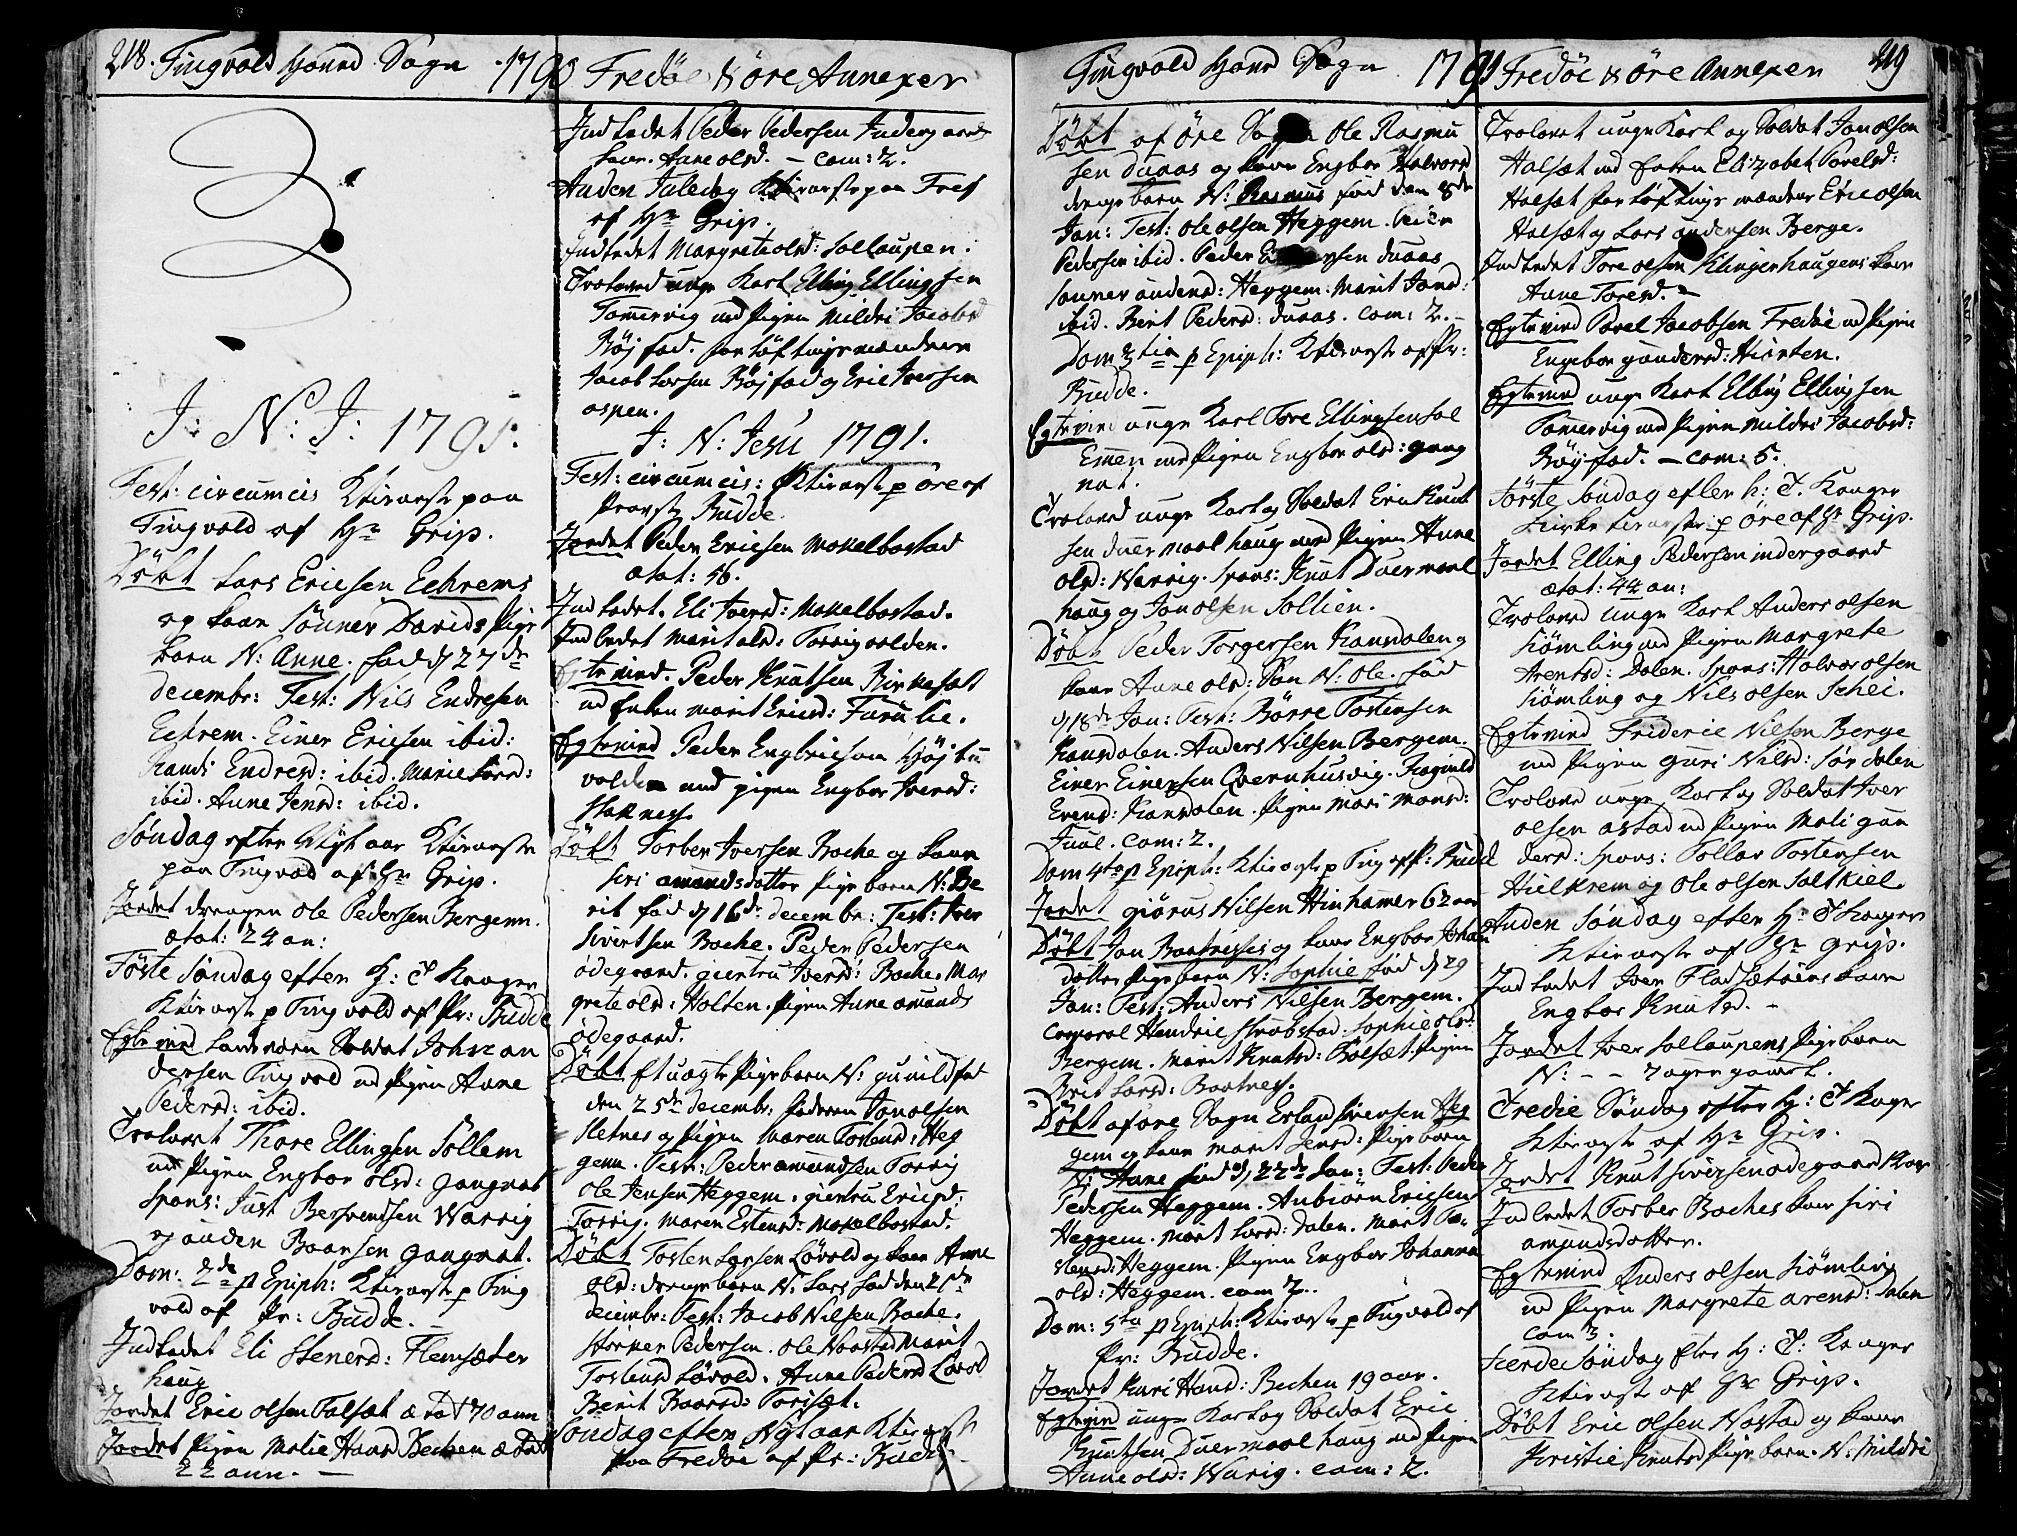 218. Tingvold Hoved Sogn 1790 Fredöe & Öre Annexer
J: N: J: 1791.
Fest: circumcis Ktieneste paa
Tingvold af Hr Grip.
Döbt Lars Ericsen Echrems
og Kone Synnev Davids Pige
barn N: Anne. fød d 27de
decembr: Test: Nils Endresen
Echrem. Einer Ericsen ibid:
Randi Endresd: ibid. Marie Larsd:
ibid. Anne Jensd: ibid.
Söndag efter Nyt aar Ktieneste
paa Tingvold af Hr Grip.
Jordet drengen Ole Pedersen Bergem.
ætat: 24 an:
Föste Söndag efter H: 3 Konger
Ktieneste p Tingvold af Pr: Budde
Egtevied Landværn Soldat John an
dersen Tingvold med Pigen Anne
Pedersd: ibid.
Trolovet Thore Ellingsen Sollem
med Pigen Engbor olsd: Gangnat
Spons: Just Bersvendsen Warvig
og anden Baarsen gangnat.
Dom: 2de p Epiph: Ktieneste p Ting
vold af Pr: Budde.
Indledet Eli Stenersd: Flemsæter
haug
Jordet Eric olsen Falsæt ætat 70 ann
Jordet Pigen Malie Hansd Bechen ætat
22 ann.
Indledet Peder Pedersen Indergaards
kone Anne olsd. com: 2.
Anden Juledag Ktieneste paa Fred
af Hr Grip.
Indledet Margrete olsd: Sollaupen:
Trolovet unge Karl Elling Ellingsen
Tomervig med Pigen Mildri Jacobsd
Röjsad. forlöftingsmændene
Jacob Larsen Röjsad og Eric Iversen
aspen.
J: N: Jesu 1791.
Fest: circumcis: Ktieneste p öre af
Provst Budde
Jordet Peder Ericsen Mokelbostad
ætat: 56.
Indledet. Eli Iversd: Mokelbostad.
Indledet Marit olsd: Torvigvolden.
Egtevied. Peder Knutsen Birkesæt
med Enken Marit Ericsd: Furulie.
Egtevied Peder Engbricson Höjbu
volden med pigen Engbor Iversd:
Stoknes.
Döbt Torber Iversen Boche og kone
Siri amundsdotter Pigebarn N: Be
rit fød d 16de decembr: Test: Iver
Sivertsen Boche. Peder Pedersen
ödegaard. giertru Iversd: Boche. Mar
grete olsd: Holten. Pigen Anne amunds
ödegaard.
Döbt et uægte Pigebarn N: gunild fød
den 25de decembr: faderen Jon olsen
Sletnes og Pigen Maren Tostensd: Heg
gem. Test: Peder amundsen Torvig
Ole Jensen Heggem. giertru Ericsd:
Torvig. Maren Estensd: Mokelbostad.
Döbt Tosten Larsen Lövold og kone Anne
olsd: drengebarn N: Lars fød den 25de
decembr: Test: Jacob Nilsen Boche.
Störker Pedersen. Ole Naastad Marit
Tostensd Lövold. Anne Pedersd Lövold
Berit Baarsd: Torisæt.
Söndag efter Nyt aar Ktieneste
paa Fredöe af Pr: Budde
Tingvold Hoved Sogn 1791 Fredöe & Öre Annexer 219
Döbt af öre Sogn Ole Rasmu
sen Duaas og kone Engbor Halvorsd
drengebarn N: Rasmus fød den 8de
Jan: Test: Ole olsen Heggem. Peder
Pedersen ibid. Peder Duaas
Sönnev andersd: Heggem. Marit Jonsd:
ibid. Berit Pedersd: Duaas. com: 2.
Dom 3tia p Epiph: Ktieneste af Pr:
Budde.
Egtevied unge Karl Tore Ellingsen Sol
Emen med Pigen Engbor olsd: gang
nat.
Trolovet unge Karl og Soldat Eric Knut
sen duermaalhaug med Pigen Anne
olsd: Warvig. Spons: Knut Duermaal
haug og Jon olsen Sollien.
Döbt Peder Torgersen Kanndalen og
kone Anne olsd: Søn N: Ole. fød
d 18de Jan: Test: Börre Tostensen
Kanndalen. Anders Nilsen Bergem.
Einer Einersen Qvernhusvig. Ragnild
Evensd: Kanndalen. Pigen Mari Monsd:
Juul. com: 2.
Dom 4ta p Epiph: Ktieneste p Ting af P: Budd
Jordet giörus Nilsen Hinhamer 62 aar
Döbt Jon Baatnesses og kone Engbor Johan
dotter Pigebarn N: Sophie fød d 29
Jan: Test: Anders Nilsen Bergem.
Corporal Hendric Strubstad. Sophie olsd:
Bergem. Marit Knutsd: Bölsæt. Pigen
Brit Larsd: Baatnes.
Döbt af öre Sogn Erland Svensen Heg
gem og kone Marit Jensd: Pigebarn
N: Anne fød d 22de Jan: Test: Peder
Pedersen Heggem. Anbiörn Ericsen
Heggem. Marit Larsd: Dalen. Marit To
stensd: Heggem. Pigen Engbor Johanna
olsd: Heggem. com 7.
Dom: 5ta p Epiph: Ktieneste p Tingvold af
Pr: Budde.
Jordet Kari Hansd: Bechen 19 aar.
Egtevied unge Karl og Soldat Eric
Knutsen Duermaalhaug med Pigen
Anne olsd: Warvig. com: 2.
Trolovet unge Karl og Soldat Jon olsen
Halsæt med Enken Elizabet Povelsd:
Halsæt forlöftingsmændene Eric olsen
Halsæt og Lars andersen Berge.
Indledet Tore olsen Klingenhaugens kone
Anne Toresd.
Egtevied Povel Jacobsen Fredöe med Pigen
Engebor gundersd: Hiorten.
Egtevied unge Karl Elling Ellingsen
Tomervig med Pigen Mildri Jacobsd:
Röysad. — com: 5.
Förste Söndag efter h: 3 Konger
Kirketieneste p öre af Hr Grip.
Jordet Elling Pedersen indergaard
ætat: 44 an:
Trolovet unge Karl Anders olsen
Kiömling med Pigen Margrete
Arentsd: Dalen. Spons: Halvor olsen
Kiömling og Nils olsen Schei.
Egtevied Frideric Nilsen Berge
med Pigen guri Nilsd: Sördalen
Trolovet unge Karl og Soldat Iver
olsen astad med Pigen Mali gun
dersd: Spons: Tollav Tostensen
Hulkrem og Ole olsen Saltkiel.
Anden Söndag efter H: 3 Konger
Ktieneste af Hr Grip.
Indledet Iver Fladsætöiens kone
Engbor Knutsd.
Jordet Iver Sollaupens Pigebarn
N: — — 7 uger gamel.
Tredie Söndag efter H: 3 Konger
Ktieneste af Hr Grip.
Jordet Knut Siversen ödegaard
Indledet Torber Boches kone Siri
amundsdotter.
Egtevied Anders olsen Kiömling
med Pigen Margrete arensd: Dalen
com 3.
Fierde Söndag efter H: 3: Konger
Ktieneste af Hr Grip.
Döbt Eric olsen Nastad og kone
Kristie Knutsd Pigebarn. N: Mildri